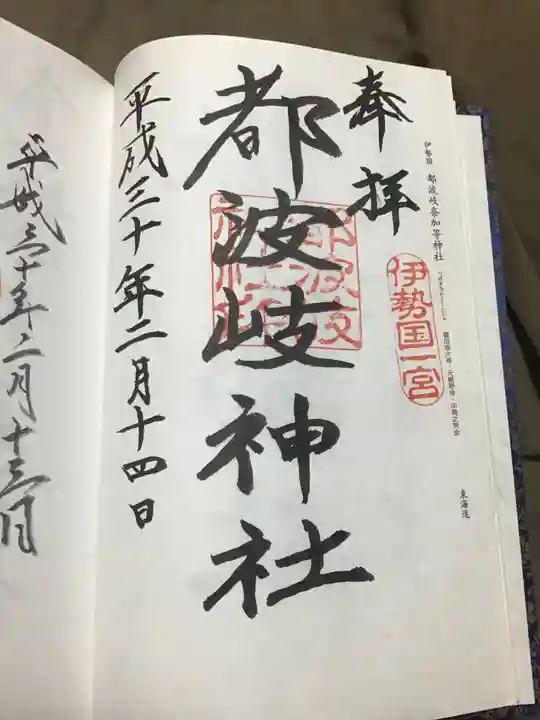 伊勢国 都波岐奈加等神社
東海道
奉拝
伊勢国一宮
都波岐神社
平成三十年二月十四日
平成三十年二月十三日